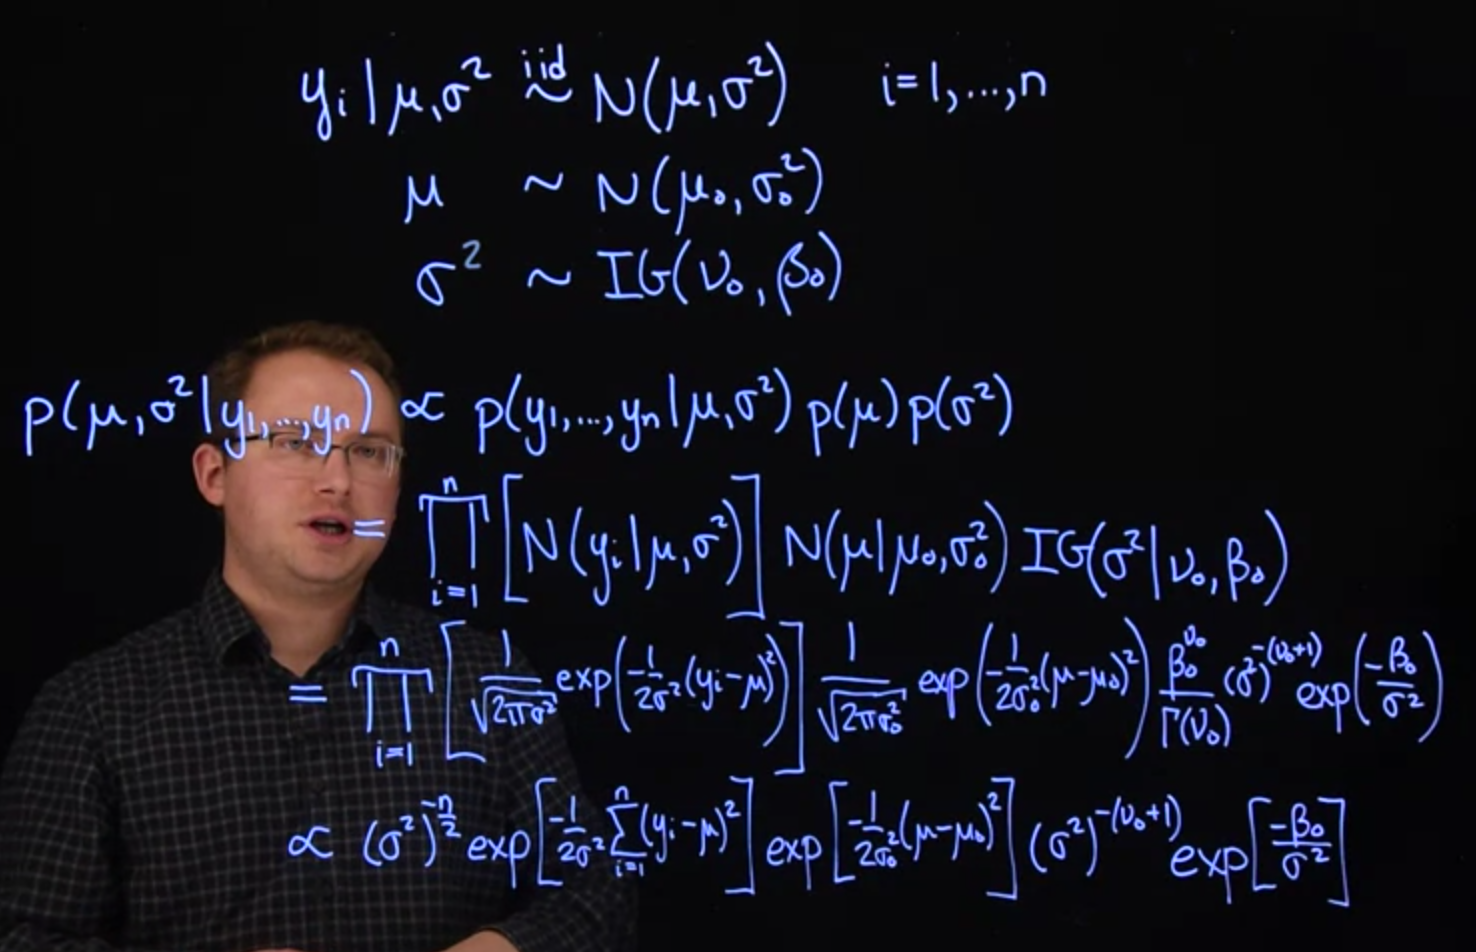 yᵢ | μ, σ² iid ~ N(μ, σ²) i=1,...,n
μ ~ N(μ₀, σ₀²)
σ² ~ IG(ν₀, β₀)
p(μ, σ² | y₁,...,yₙ) ∝ p(y₁,...,yₙ | μ, σ²) p(μ) p(σ²)
= ∏ᵢ₌₁ⁿ [N(yᵢ | μ, σ²)] N(μ | μ₀, σ₀²) IG(σ² | ν₀, β₀)
= ∏ᵢ₌₁ⁿ [1/√(2πσ²) exp(-1/2σ² (yᵢ-μ)²)] 1/√(2πσ₀²) exp(-1/2σ₀² (μ-μ₀)²) β₀^ν₀/Γ(ν₀) (σ²)^-(ν₀+1) exp(-β₀/σ²)
∝ (σ²)^(-n/2) exp[-1/2σ² ∑ᵢ₌₁ⁿ (yᵢ-μ)²] exp[-1/2σ₀² (μ-μ₀)²] (σ²)^-(ν₀+1) exp[-β₀/σ²]